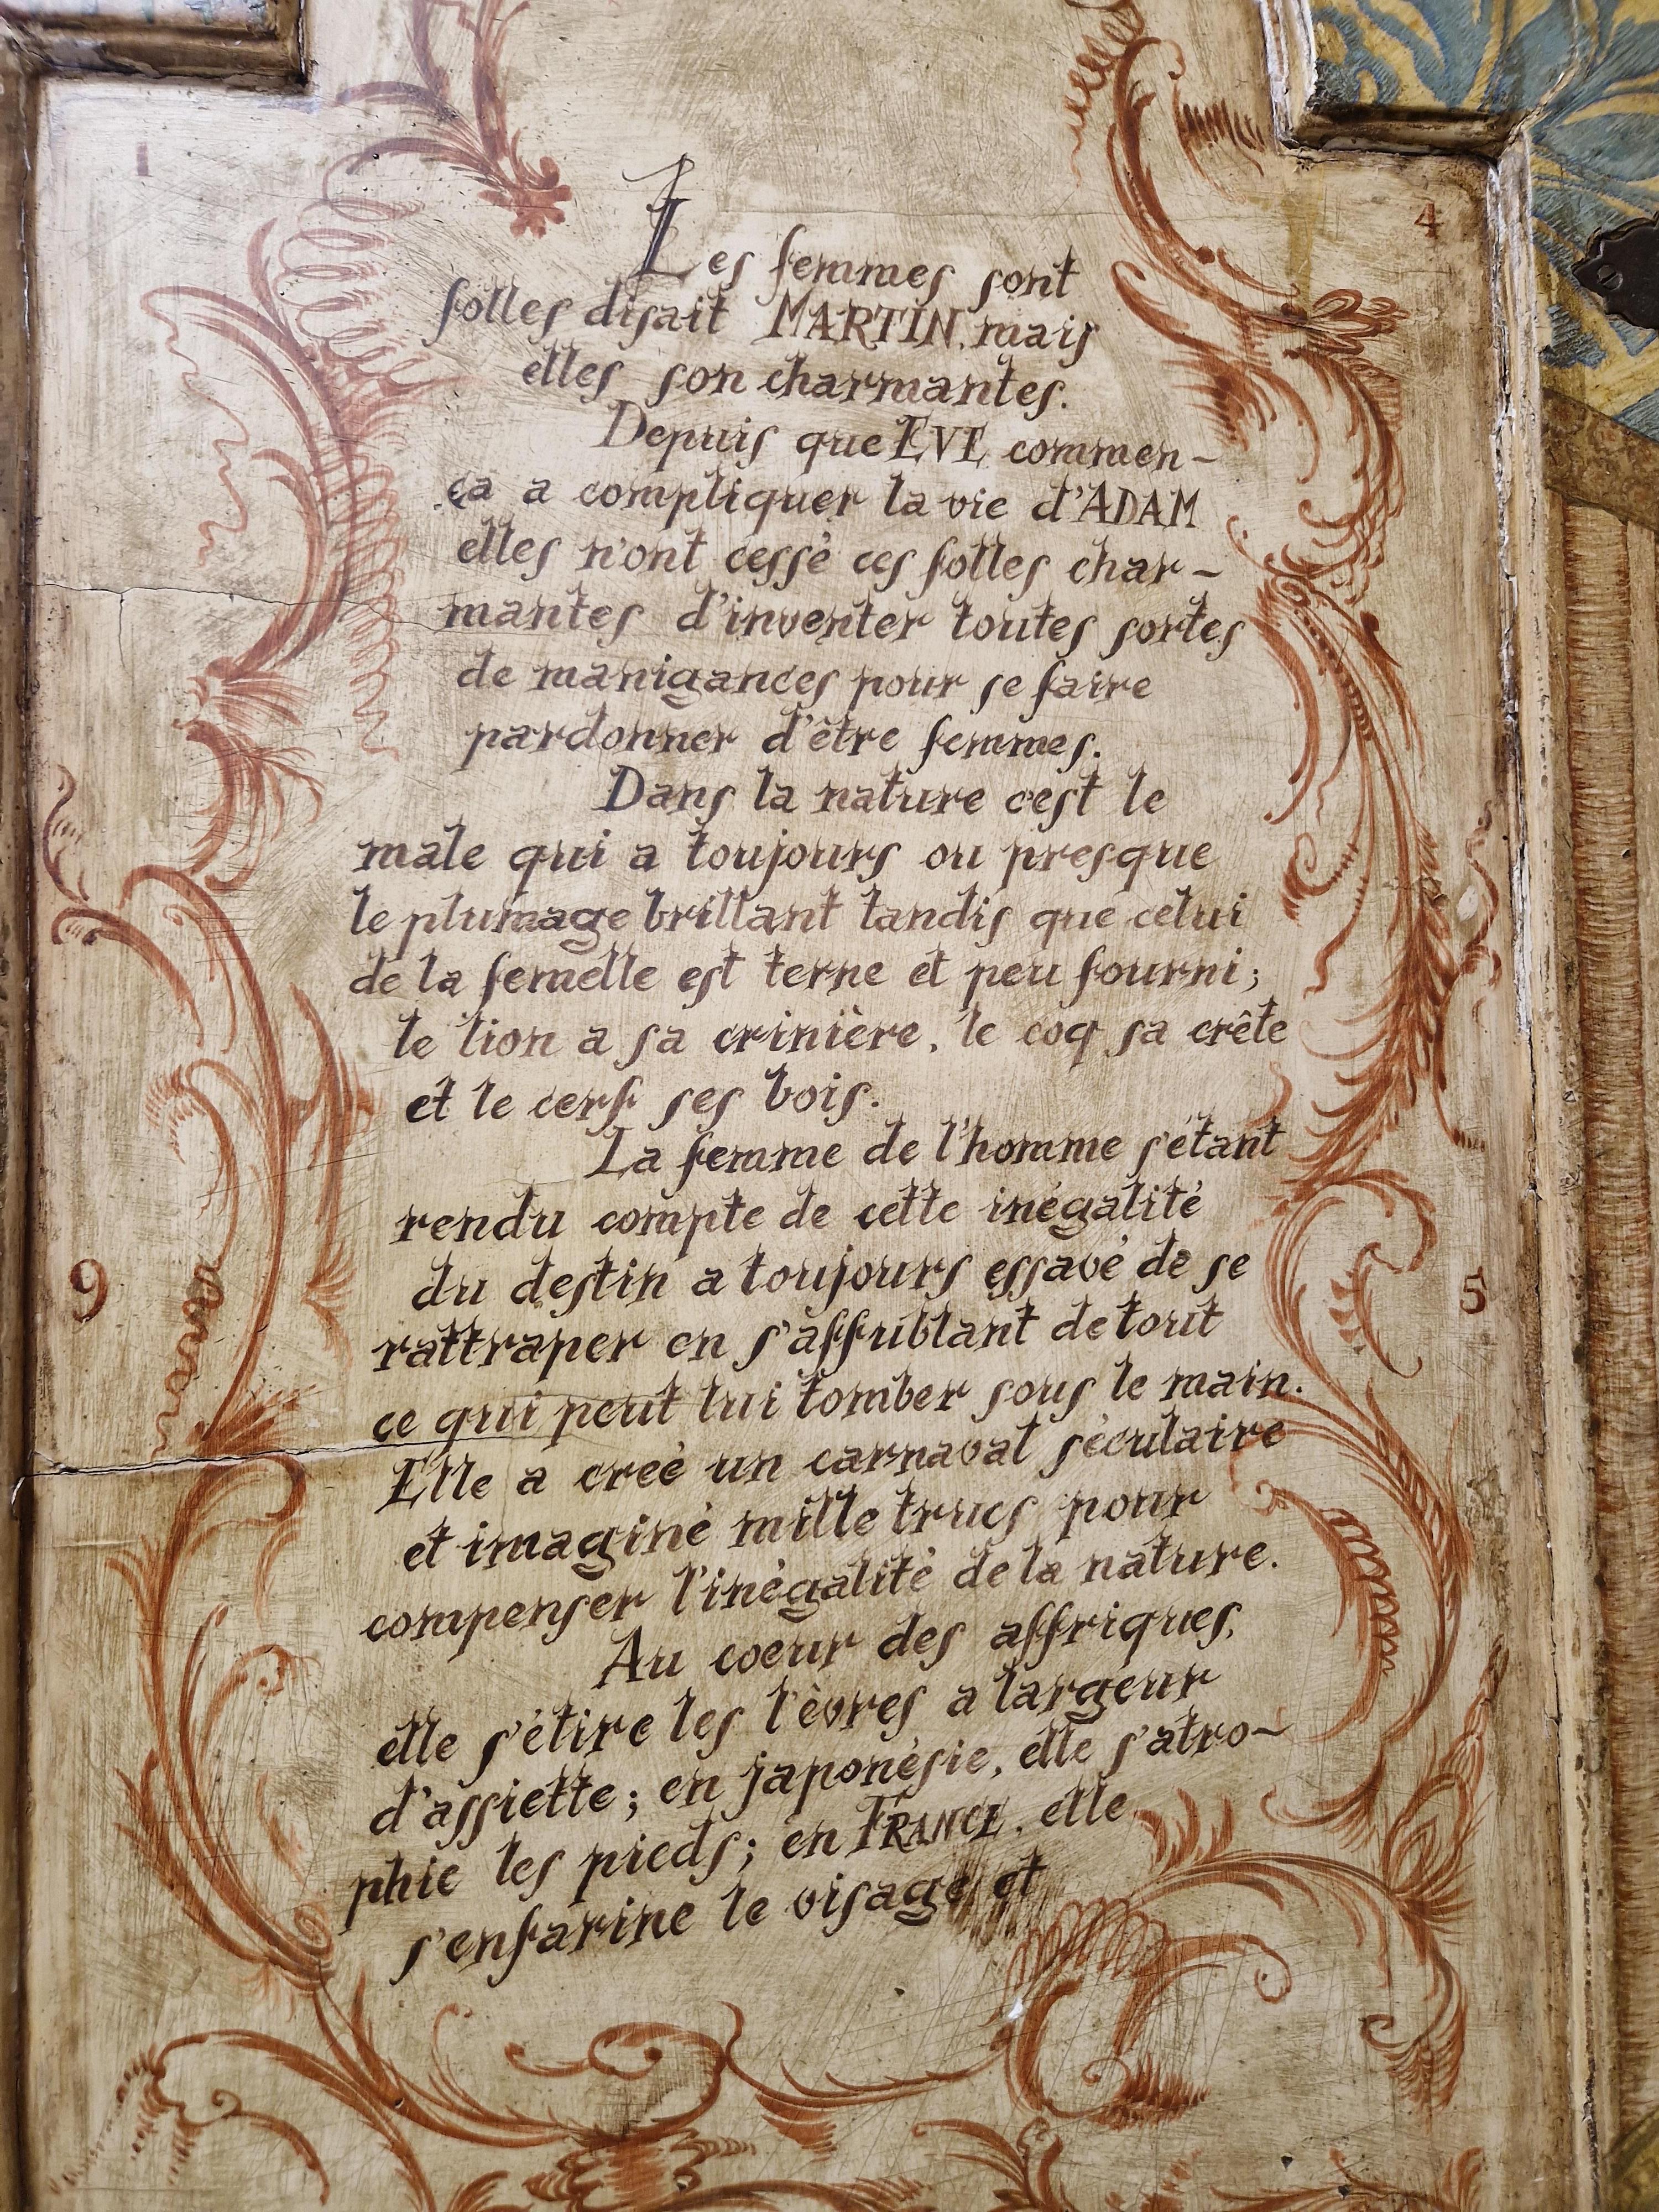 1
4
Les femmes sont
folles disait MARTIN, mais
elles son charmantes.
Depuis que EVE commen-
ça a compliquer la vie d'ADAM
elles n'ont cessé ces folles char-
mantes d'inventer toutes sortes
de manigances pour se faire
pardonner d'être femmes.
Dans la nature c'est le
male qui a toujours ou presque
le plumage brillant tandis que celui
de la femelle est terne et peu fourni;
le lion a sa crinière, le coq sa crête
et le cerf ses bois.
La femme de l'homme s'étant
rendu compte de cette inégalité
du destin a toujours essavé de se
9
5
rattraper en s'affublant de tout
ce qui peut lui tomber sous le main.
Elle a creé un carnaval séculaire
et imaginé mille trucs pour
compenser l'inégalité de la nature.
Au coeur des affriques,
elle s'étire les lèvres a largeur
d'assiette; en japonésie, elle s'atro-
phie les pieds; en FRANCE, elle
s'enfarine le visage et